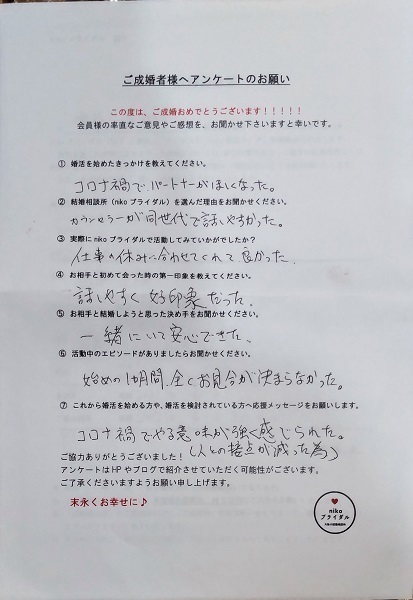 ご成婚者様へアンケートのお願い
この度は、ご成婚おめでとうございます！！！！！
会員様の率直なご意見やご感想を、お聞かせ下さいますと幸いです。
① 婚活を始めたきっかけを教えてください。
コロナ禍でパートナーがほしくなった。
② 結婚相談所（niko ブライダル）を選んだ理由をお聞かせください。
カウンセラーが同世代で話しやすかった。
③ 実際に niko ブライダルで活動してみていかがでしたか？
仕事の休みに合わせてくれて良かった。
④ お相手と初めて会った時の第一印象を教えてください。
話しやすく好印象だった。
⑤ お相手と結婚しようと思った決め手をお聞かせください。
一緒にいて安心できた。
⑥ 活動中のエピソードがありましたらお聞かせください。
始めの1カ月間、全くお見合が決まらなかった。
⑦ これから婚活を始める方や、婚活を検討されている方へ応援メッセージをお願いします。
コロナ禍でやる意味が強く感じられた。
（人との接点が減った為）
ご協力ありがとうございました！
アンケートは HP やブログで紹介させていただく可能性がございます。
ご了承くださいますようお願い申し上げます。
末永くお幸せに♪
niko
ブライダル